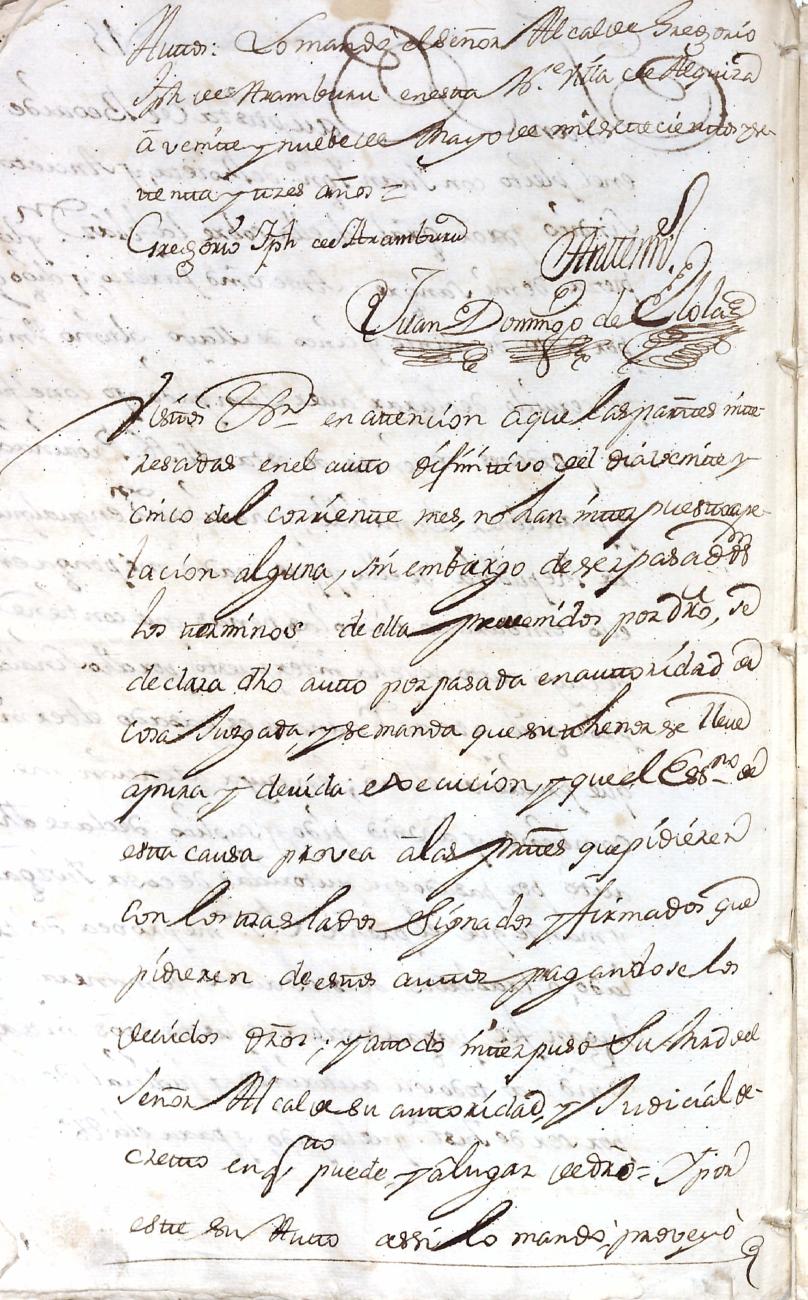 Autos: Lo mandó el señor Alcalde Gregorio
Jph de Aramburu en esta N.e Villa de Elguira
â veinte y nuebe de Mayo de mil settecientos y se-
tenta y tres años =
Gregorio Jph de Aramburu
Antemi.
Juan Domingo de Elola
Vistos &.n en attencion âque las parttes inte-
resadas en el autto difinittivo del dia veinte y
cinco del corriente mes, no han interpuesto ape-
lacion alguna, sin embargo de ser pasados
los terminos de ella prevenidos por dro, se
declara dho autto por pasada en auttoridad de
cosa Juzgada, y se manda que su thenor se lleve
âpura y devida execucion, y que el Essno de
esta causa provea âlas parttes que pidieren
con los traslados signados y firmados que
pidieren de estos auttos pagandose los
devidos dros; y attodo interpuso Su Mrd el
Señor Alcalde su auttoridad, y Judicial de-
cretto en qtto puede y âlugar de dro = Y por
este su Autto assi lo mandó, proveyó